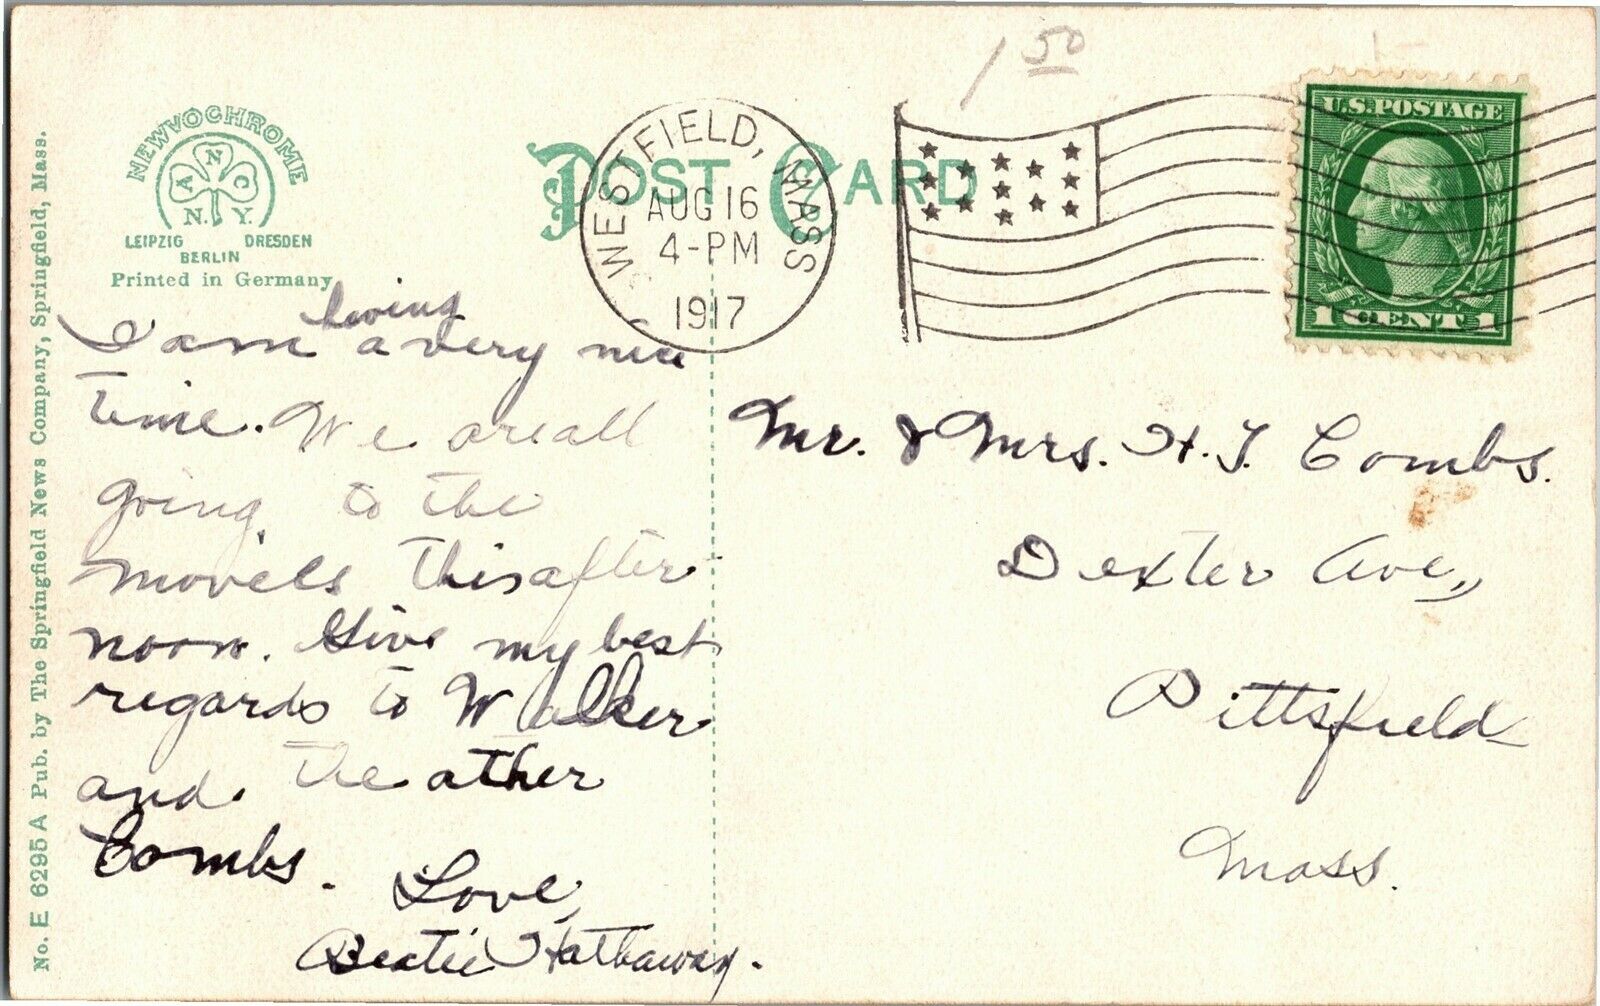 1 50
NEWVOCHROME
A N C
N.Y.
LEIPZIG DRESDEN
BERLIN
Printed in Germany
POST CARD
WESTFIELD, MASS
AUG 16
4-PM
1917
U.S. POSTAGE
1 CENT 1
No. E 6295 A Pub. by The Springfield News Company, Springfield, Mass.
having
I am a very nice
time. We are all
going to the
movies this after
noon. Give my best
regards to Walker
and the other
Combs.
Love,
Hathaway.
Mr. & Mrs. H. T. Combs.
Dexter Ave,,
Pittsfield
Mass.